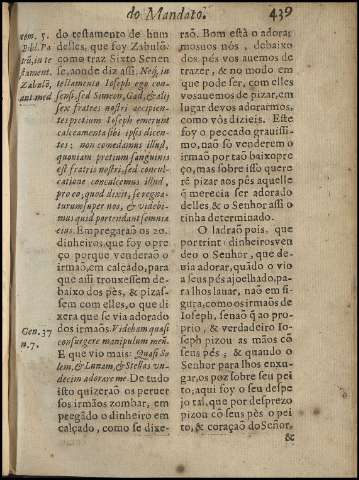 do Mandato. 439
rem. 5.
Bibl. Pa
trũ, in te
stament.
Zabulõ,
ant. med
do testamento de hum
delles, que foy Zabulõ
como traz Sixto Senen
se, aonde diz assi. Neq; in
testamento Ioseph ego con-
sensi, sed Simeon, Gad, & alij
sex fratres nostri accipien-
tes pretium Ioseph emerunt
calceamenta sibi ipsis dicen-
tes: non comedamus illud,
quoniam pretium sanguinis
est fratris nostri, sed concul-
catione conculcemus illud,
pro eo, quod dixit, se regna-
turum super nos, & videbi-
mus quid portendant somnia
eius. Empregaraõ os 20.
dinheiros, que foy o pre-
ço porque venderaõ o
irmaõ, em calçado, para
que assi trouxessem de-
baixo dos pès, & pizas-
sem com elles, o que di
xera que se via adorado
dos irmaõs. Videbam quasi
consurgere manipulum meũ.
E que vio mais: Quasi So-
lem, & Lunam, & stellas vn-
decim adorare me. De tudo
isto quizeraõ os perver
sos irmãos zombar, em
pregãdo o dinheiro em
calçado, como se dixe-
Gen. 37
n. 7.
raõ. Bom està o adorar
mosuos nós, debaixo
dos pés vos auemos de
trazer, & no modo em
que pode ser, com elles
vos auemos de pizar, em
lugar de vos adorarmos,
como vòs dizieis. Este
foy o peccado grauissi-
mo, naõ so venderem o
irmaõ por taõ baixo pre
ço, mas sobre isso quere
rẽ pizar aos pès aquelle
õ merecia ser adorado
delles & o Senhor assi o
tinha determinado.
O ladraõ pois, que
por trint dinheiros ven
deo o Senhor, que de-
uia adorar, quãdo o vio
a seus pès ajoelhado, pa-
ra lhos lauar, naõ em fi-
gura, como os irmãos de
Ioseph, senaõ q̃ ao pro-
prio, & verdadeiro Io-
seph pizou as mãos cõ
seus pès; & quando o
Senhor para lhos enxu-
gar, os poz sobre seu pei
to; aqui foy o seu despe
jo tal, que por desprezo
pizou cõ seus pès o pei
to, & coraçaõ do Señor,
&